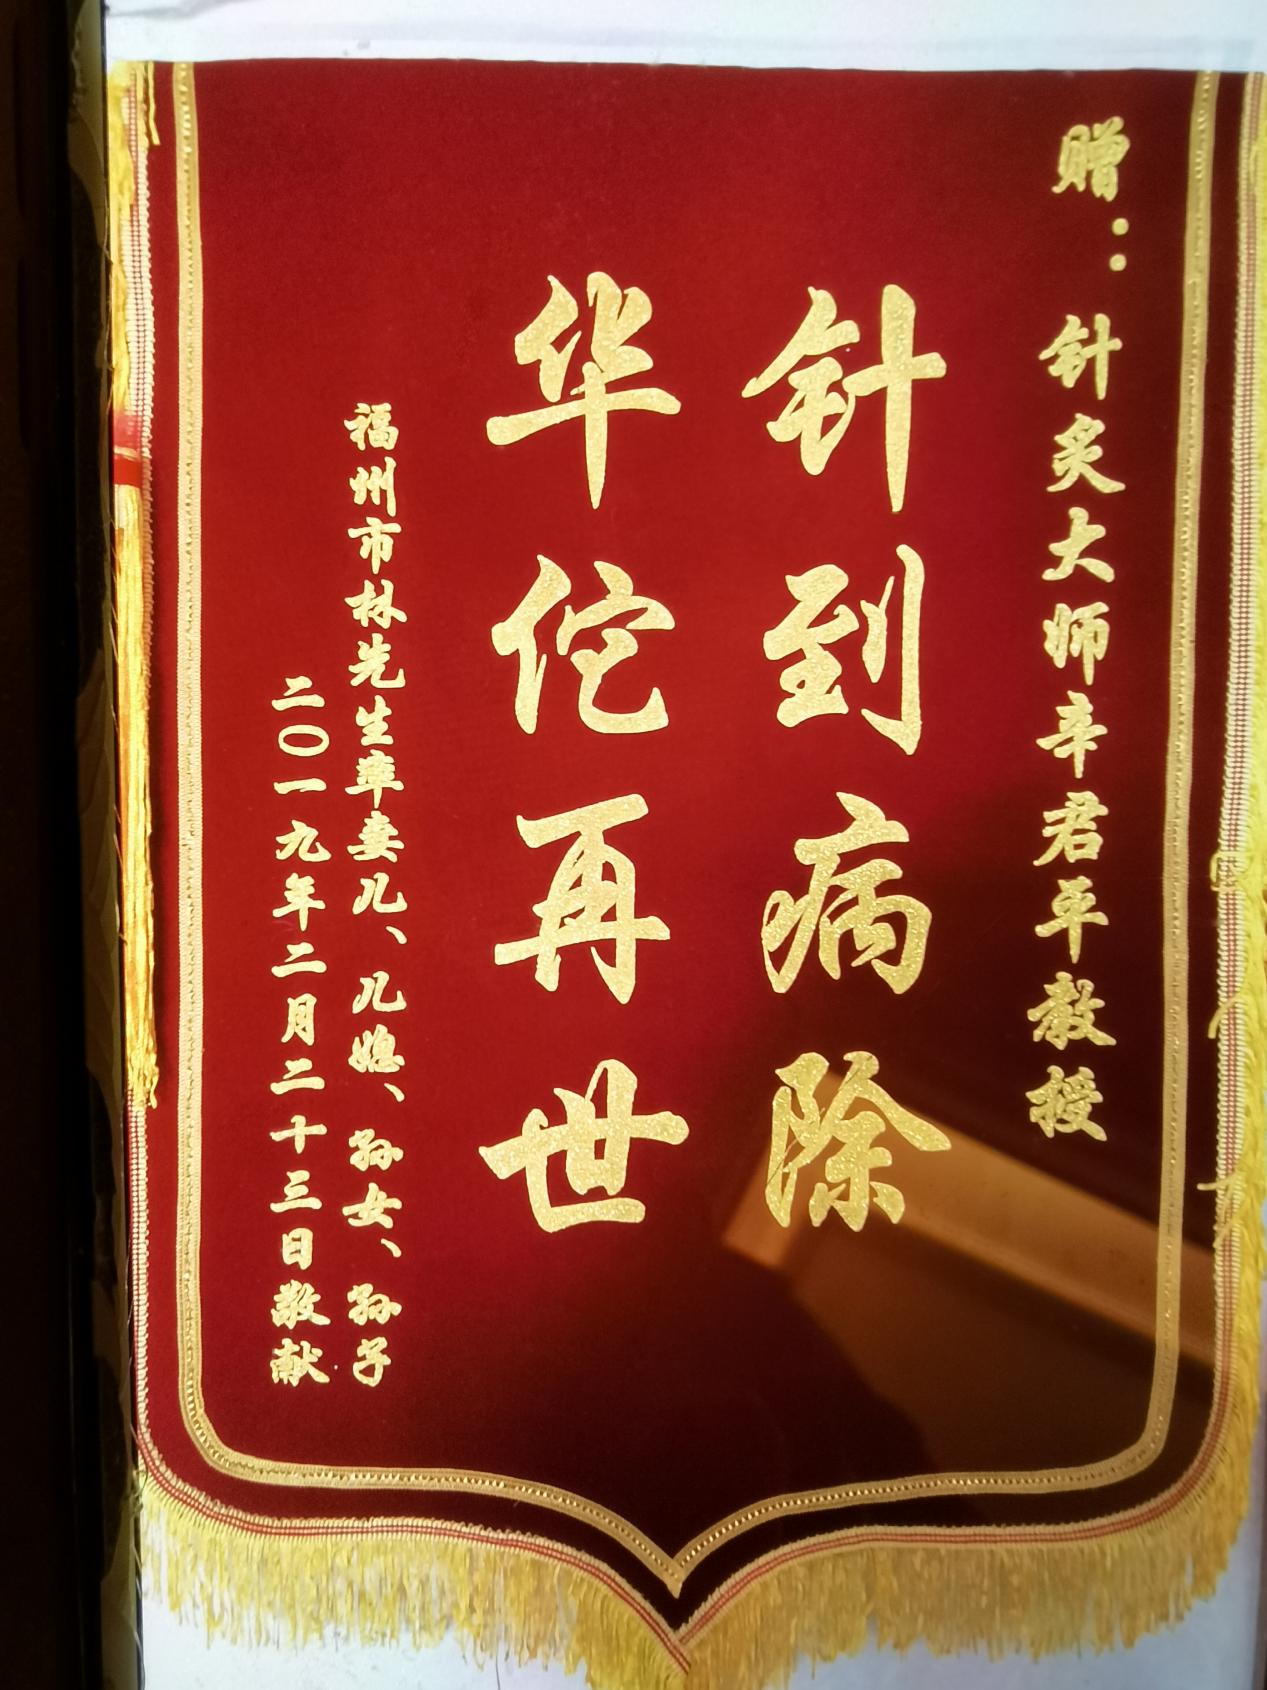 赠：针灸大师辛君平教授
针到病除
华佗再世
福州市林先生率妻儿、儿媳、孙女、孙子
二〇一九年二月二十三日敬献